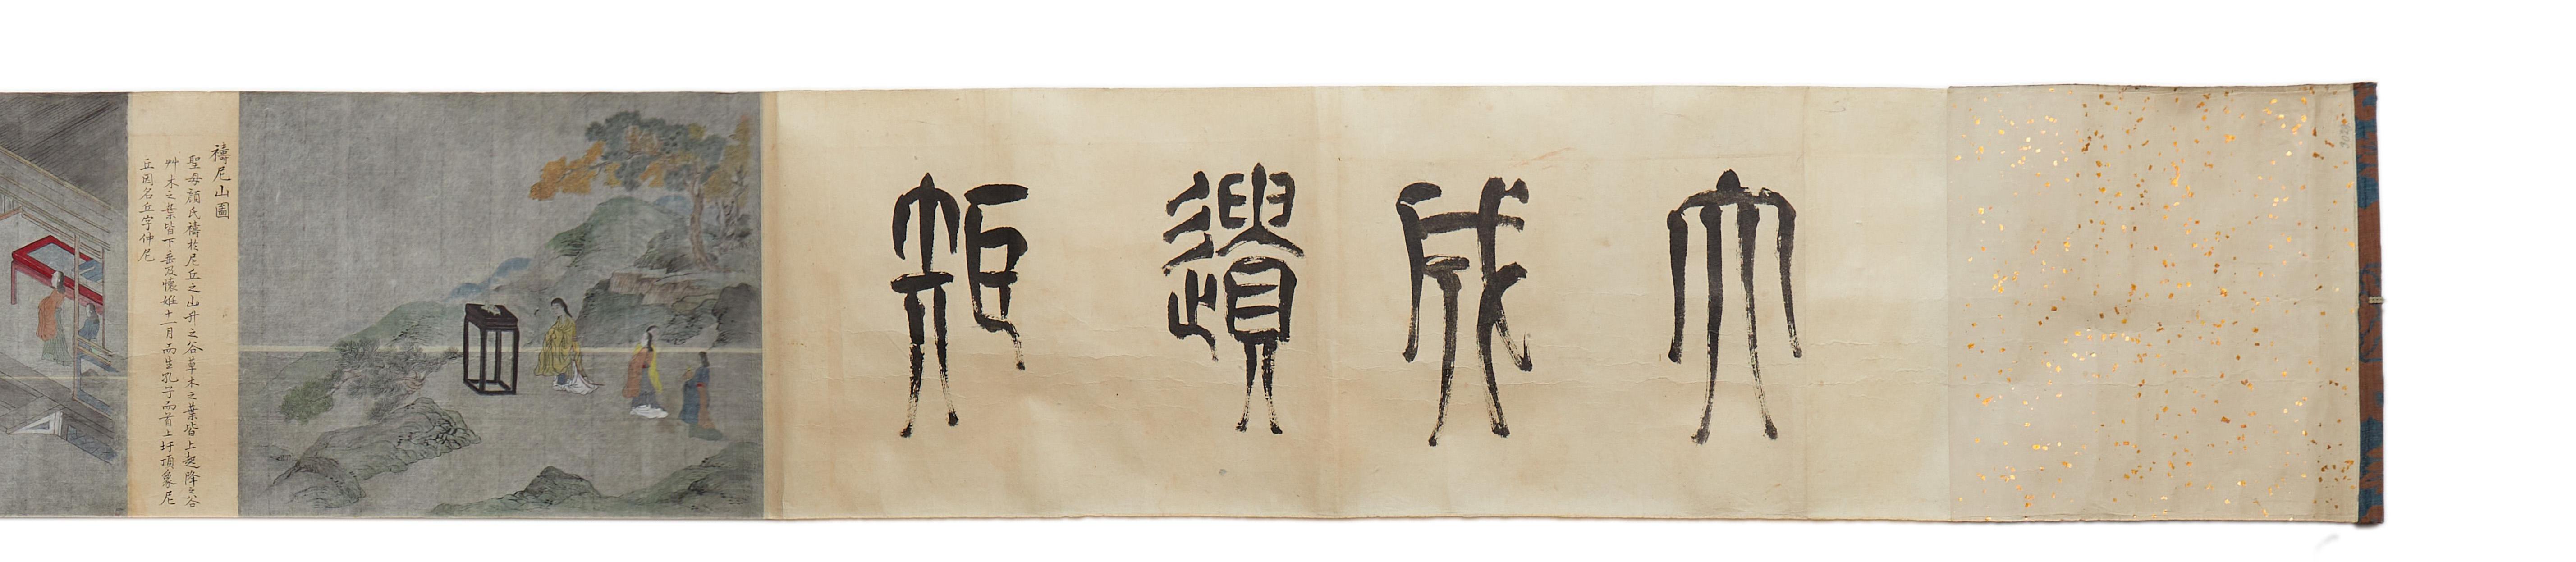 大成遺矩
禱尼山圖
聖母顏氏禱扵尼丘之山升之谷草木之葉皆上起降之谷
艸木之葉皆下垂及懷姙十一月而生孔子而首上圩頂象尼
丘因名丘字仲尼